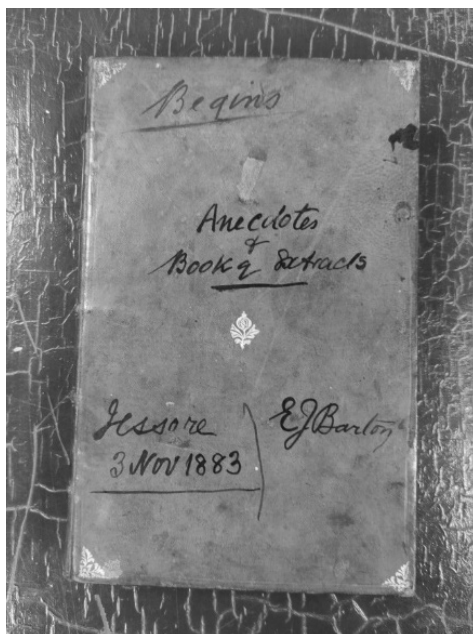 Begins
Anecdotes
&
Book of Extracts
Jessore
3 Nov 1883
EJBarton